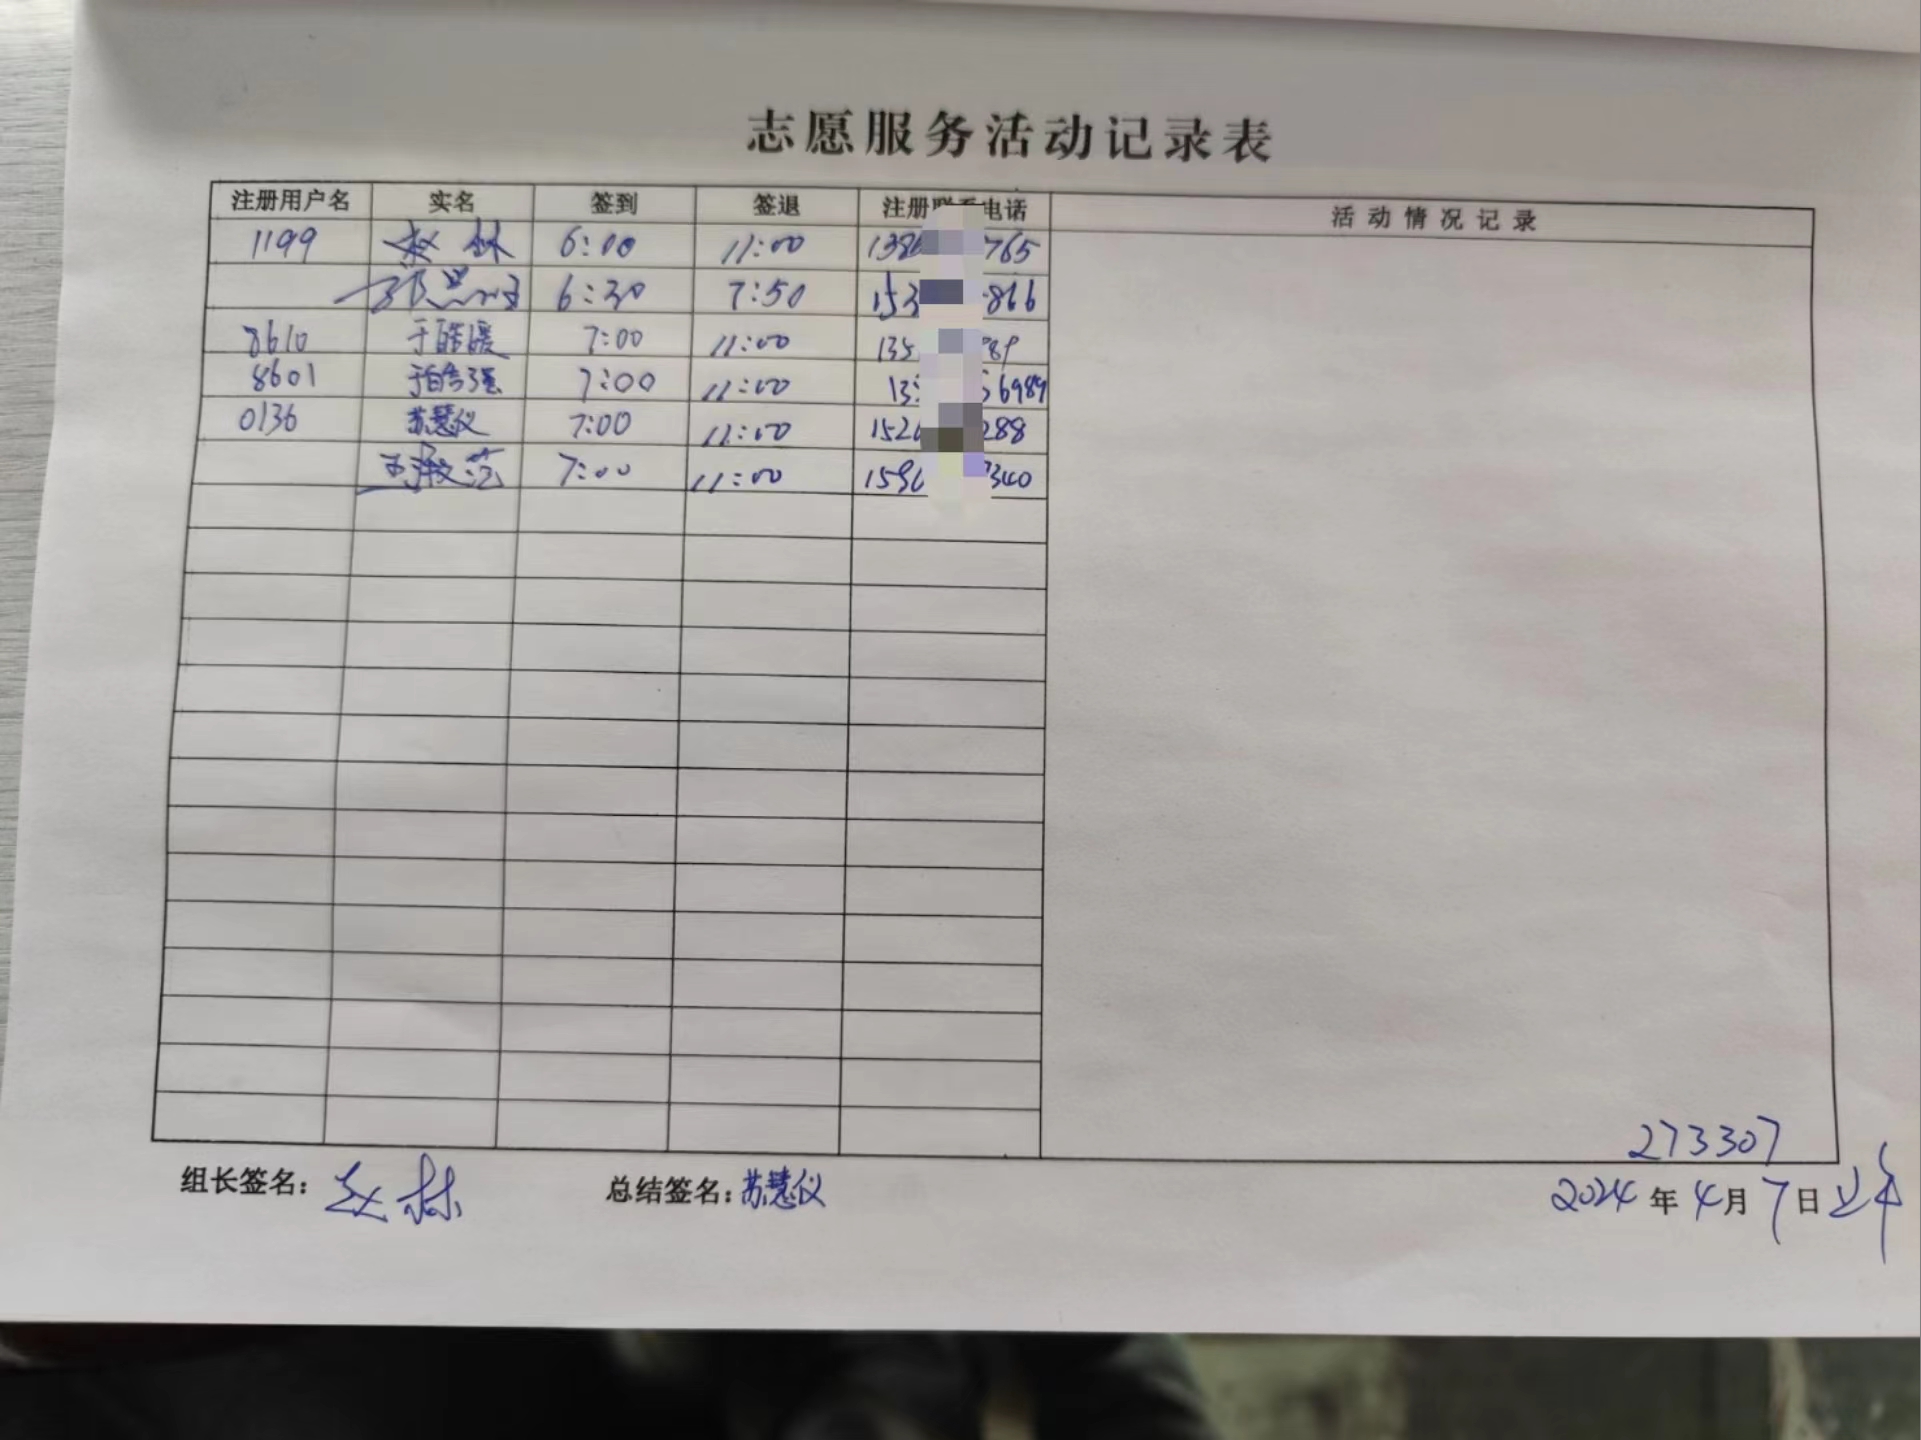 志愿服务活动记录表
注册用户名 实名 签到 签退 注册联系电话 活动情况记录
1199 赵林 6:00 11:00 138 765
6:30 7:50 153 866
8610 于皓暖 7:00 11:00 135 89
8601 7:00 11:00 13 6989
0136 苏慧仪 7:00 11:00 152 288
7:00 11:00 159 340
273307
组长签名: 赵林 总结签名: 苏慧仪 2024 年 4 月 7 日 上午